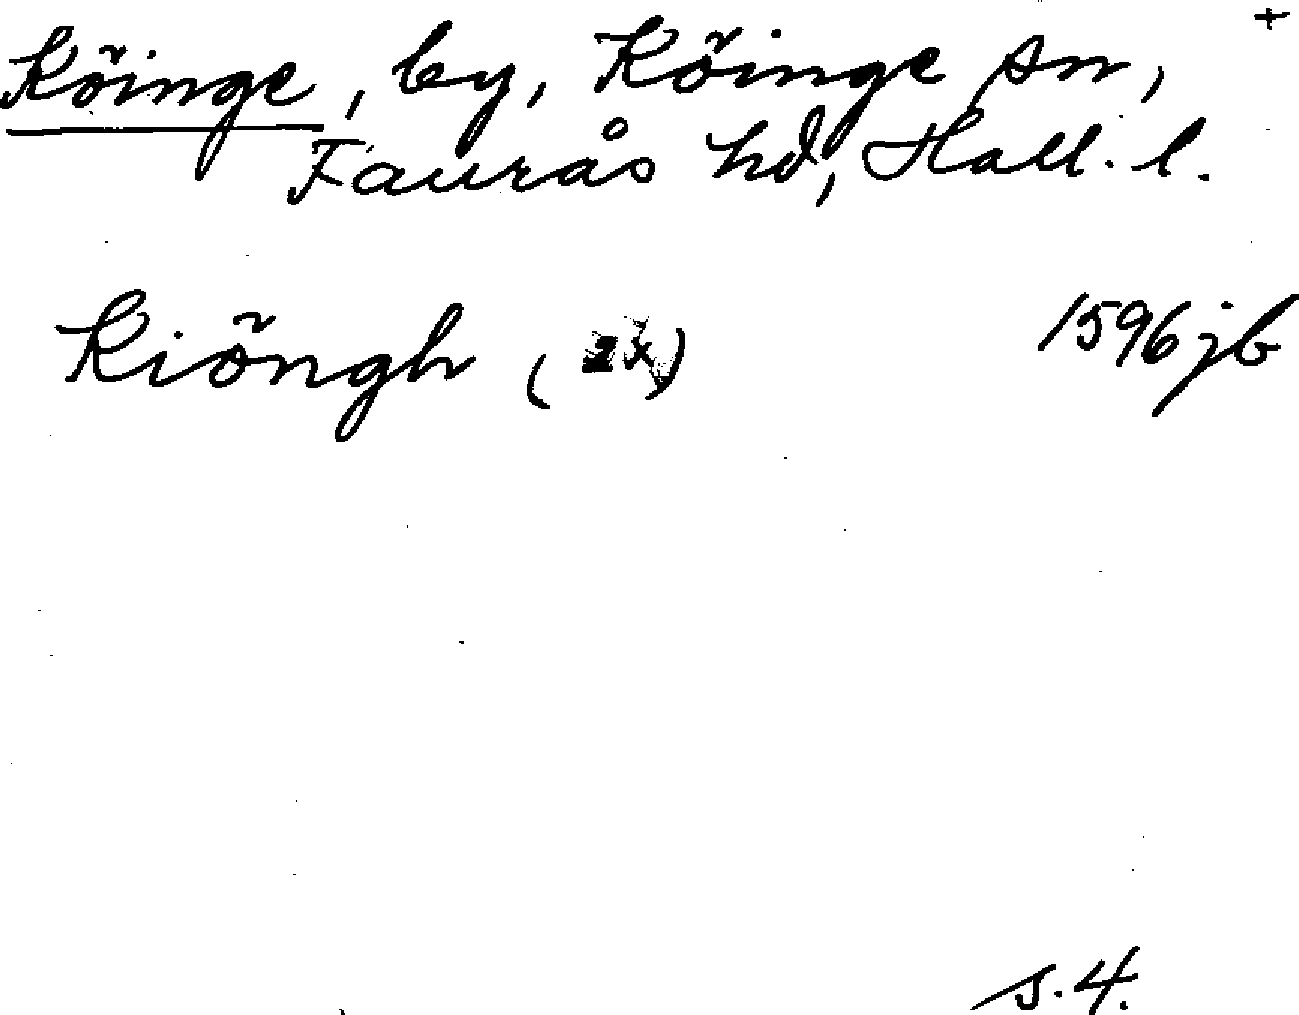 +
Köinge, by, Köinge sn,
Faurås hd, Hall. l.
Kiöngh (2x) 1596 jb
s. 4.